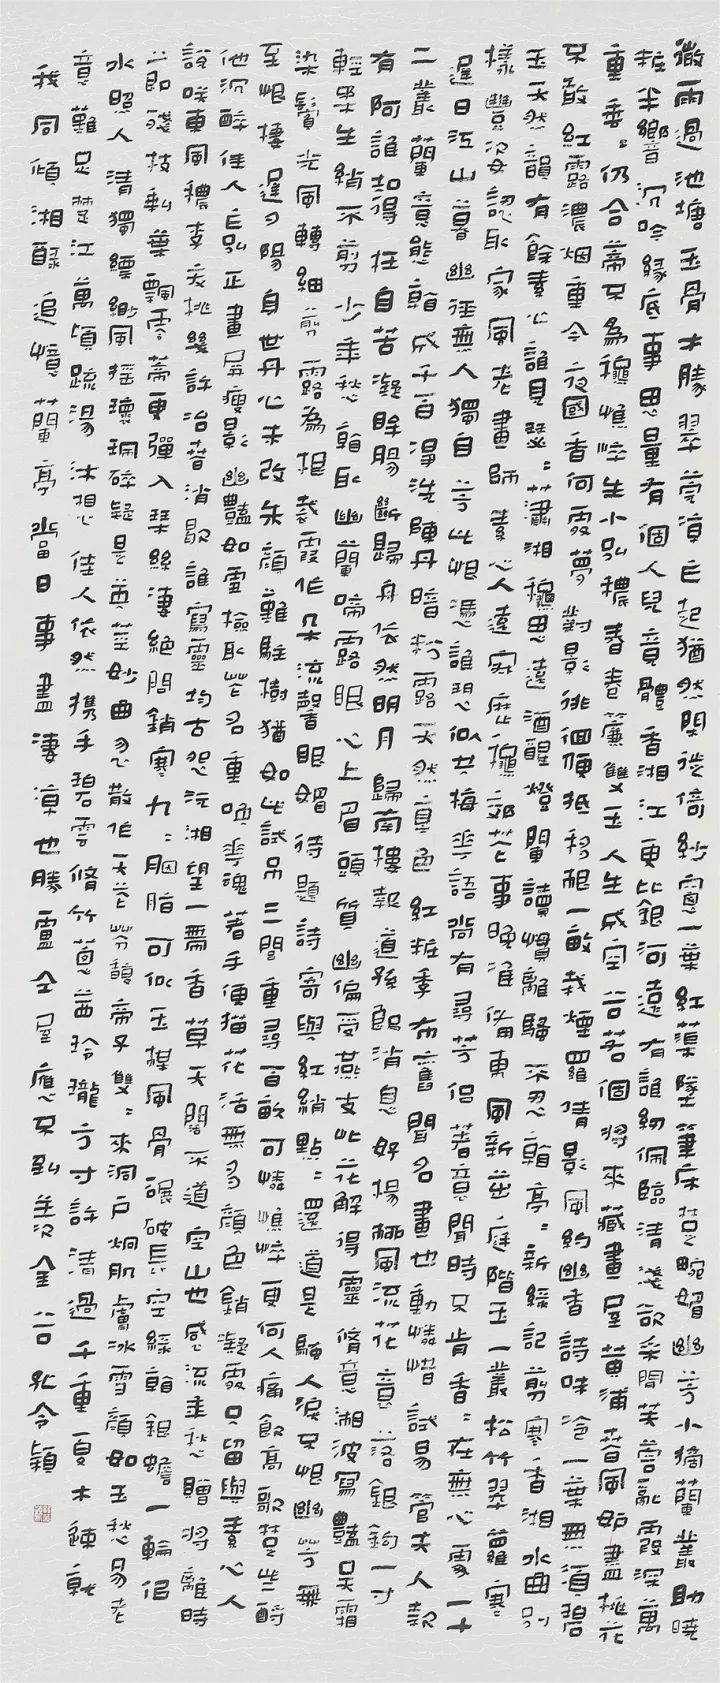 微雨過池塘玉骨才勝翠菅涼乍起猶然閒從倚紗窗一葉紅蕖墜筆床楚畹媚幽芳小摘蘭叢助曉
粧半嚮沉吟緣底事思量有個人兒竟體香湘江更比銀河遠有誰紉佩臨清淺欲采閒芙蓉亂霞深萬
重垂垂仍合蒂只為穠憔悴生小弘穠春春簾雙玉人生成空谷若個將來藏畫屋黃浦春風如畫桃花
只敢紅露濃烟重今夜國香何處夢對影徘徊便抵移根一畝栽煙羅倩影風約幽香詩味冷一葉無須碧
玉天然韻有餘素心誰見瑟瑟瀟湘穠思遠酒醒燈闌讀慣離騷不忍翦亭亭新綠記翦寒香湘水曲別
樣豐姿認取家風老畫師素心人遠寂歷穠節花事晚准備東風新茁庭階玉一叢松竹翠蘿寒
遲日江山暮幽徑無人獨自芳此恨憑誰訴似共梅花語尚有尋芳侶著意聞時只肯香香在無心處一十
二叢蘭意態翦成千百淂洗陳丹暗粉露天然真色紅粧季布舊聞名畫也動憐惜試易管夫人款
有阿誰知得枉自苦凝眸腸斷歸舟依然明月歸南樓報道孫郎消息好楊柳風流花意落銀鉤一寸
輕柔生綃不剪少年愁翦取幽蘭啼露眼心上眉頭質幽偏受燕支此花解得靈脩意湘波寫豔吳霜
染鬢光風轉細翦露為裾裁霞作朵流聲眼媚待題詩寄與紅綃點點還道是騷人淚只恨幽芳無
至恨樓遲夕陽身世丹心未改朱顏難駐樹猶如此試弔三閭重尋百畝可憐憔悴更何人痛飲高歌楚些酹
他沉醉佳人乍弘正畫屏瘦影幽豔如雪檢取芳名重喚花魂著手便描花活無多顏色銷凝處只留與素心人
說咲東風穠李夭桃幾許冶春消歇誰寫靈均古怨沅湘望一帶香草天闊不道空山也感流年愁贈將離時
節殘枝剩葉飄零蒂更彈入琴絲淒絕問銷寒九九胭脂可似玉梅風骨碾破長空綠翦銀蟾一輪侶
水照人清獨縹緲風搖瓊珮碎疑是英莖妙曲忽散作天花芳馥帝子雙雙來洞戶烟肌膚冰雪顏如玉愁易老
意難足楚江萬頃疏湯沐想佳人依然攜手碧雲脩竹蔥茜玲瓏方寸許清過千重夏木疎就
我同傾湘醁追憶蘭亭當日事畫淒涼也勝盧仝屋應只到美金谷孔令穎